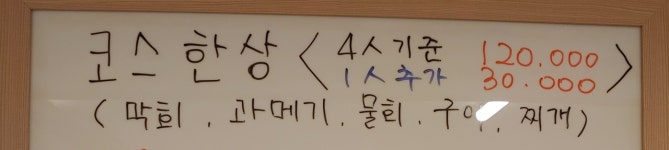 코스 한상 < 4人 기준 120.000
1人 추가 30.000 >
( 막회 . 과메기 . 물회 . 구이 . 찌개 )